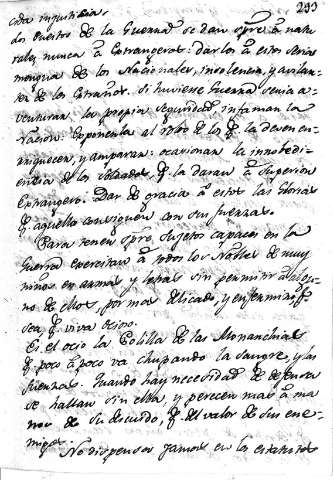 293
cada injusticia.
Los Puestos de la Guerra se dan spre. â natu-
rales, nunca â Extrangeros: darlos â estos seria
mengua de los Nacionales, insolencia, y avilan-
tez de los Extraños. Si huviese Guerra seria a-
venturar la propia seguridad infaman la
Nacion: Exponenla al robo de los q. la deven en-
rriquecer, y amparan: ocasionan la innobedi-
encia de los Soldados q. la daran â Superior
Extrangero: Dar de gracia â estos las glorias
q. aquellos consiguen con sus fuerzas.
Para tener spre. sujetos capaces en la
Guerra exercitan â todos los Nobles de muy
niños en armas y letras sin permitir
no de ellos, por mas delicado, y enfermizo q.
sea q. viva ocioso.
Es el ocio la Polilla de las Monarchias
q. poco â poco va chupando la sangre, y las
fuerzas. Quando hay necesidad de defensa
se hallan sin ella, y perecen mas â ma-
nos de su descuido, q. del valor de sus ene-
migos.
No dispensar jamas en los estatutos